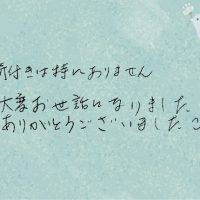 付きは特にありません
大変お世話になりました
ありがとうございました